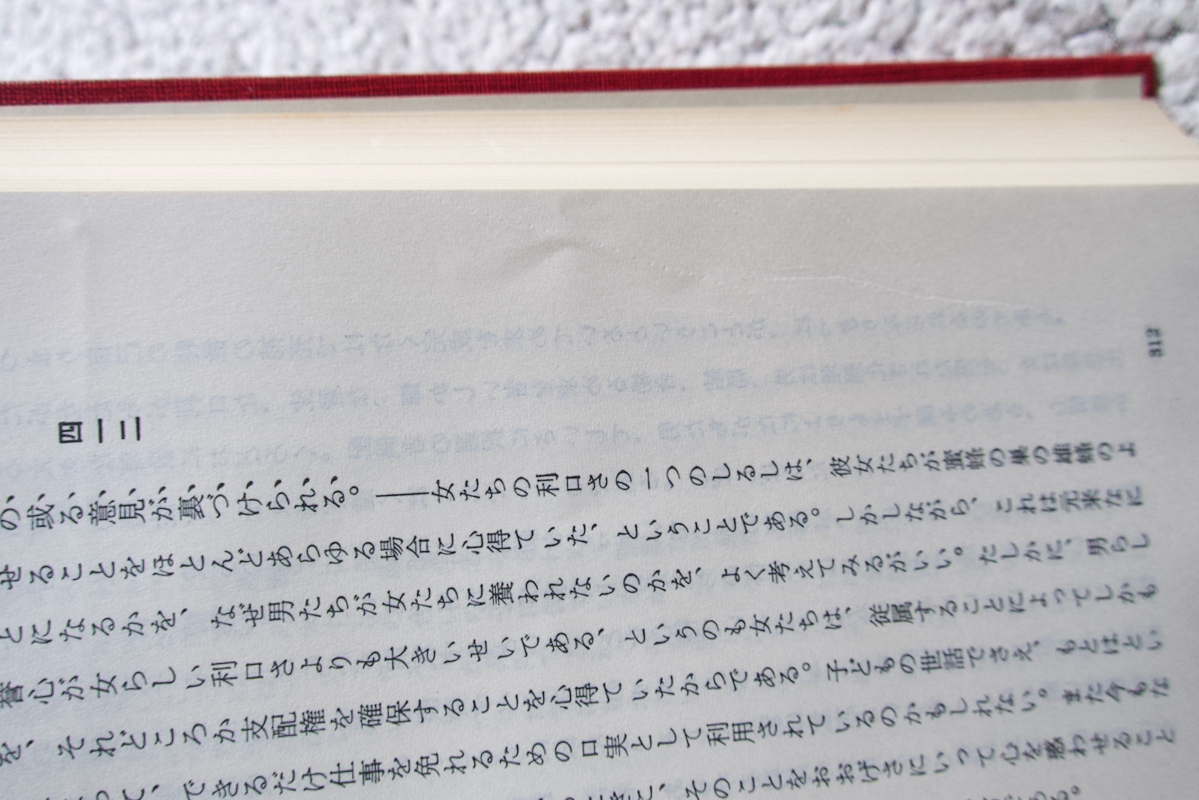 312
四一二
の、或る意見が裏づけられる。――女たちの利口さの一つのしるしは、彼女たちが蜜蜂の巣の雄蜂のよ
せることをほとんどあらゆる場合に心得ていた、ということである。しかしながら、これは元来なに
とになるかを、なぜ男たちが女たちに養われないのかを、よく考えてみるがいい。たしかに、男らし
誉心が女らしい利口さよりも大きいせいである、というのも女たちは、従属することによってしかも
を、それどころか支配権を確保することを心得ていたからである。子どもの世話でさえ、もとはとい
って、できるだけ仕事を免れるための口実として利用されているのかもしれない。また今もな
ときに、そのことをおおげさにいって心を惑わせること